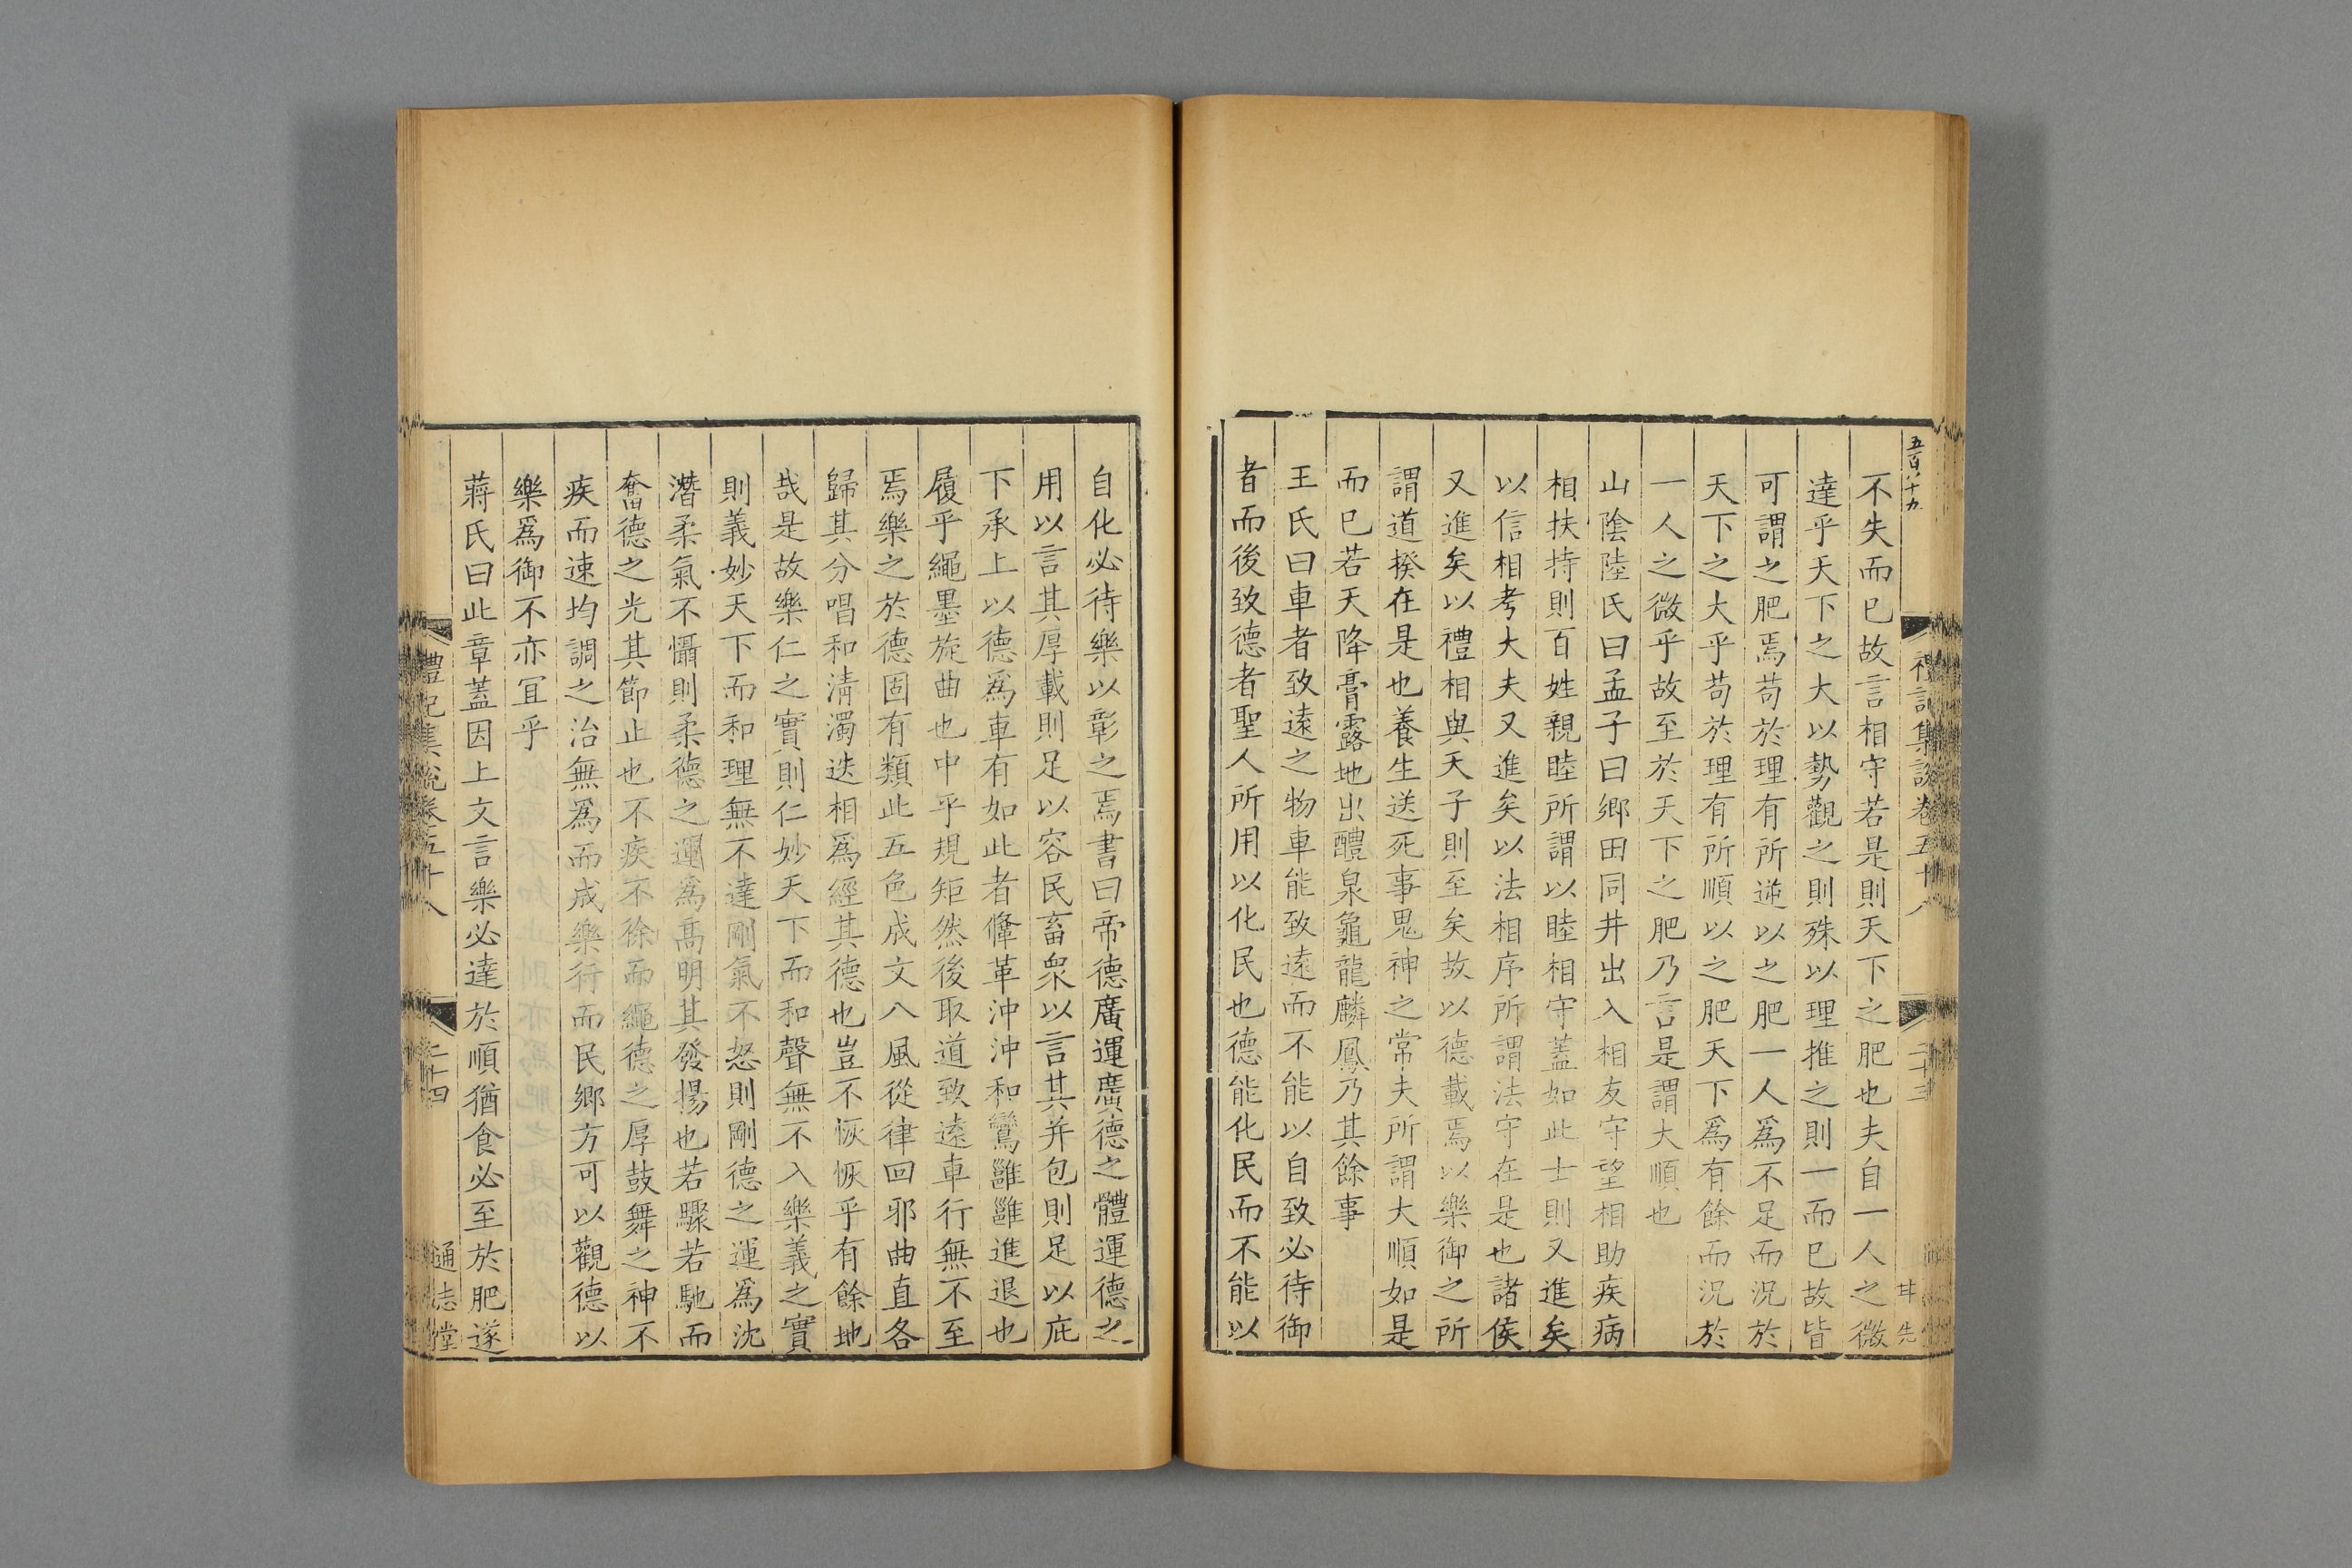 五百八十九
禮記集說卷五十八
二十三
甘先
不失而已故言相守若是則天下之肥也夫自一人之微
達乎天下之大以勢觀之則殊以理推之則一而已故皆
可謂之肥焉苟於理有所逆以之肥一人為不足而況於
天下之大乎苟於理有所順以之肥天下為有餘而況於
一人之微乎故至於天下之肥乃言是謂大順也
山陰陸氏曰孟子曰鄉田同井出入相友守望相助疾病
相扶持則百姓親睦所謂以睦相守蓋如此士則又進矣
以信相考大夫又進矣以法相序所謂法守在是也諸侯
又進矣以禮相與天子則至矣故以德載焉以樂御之所
謂道揆在是也養生送死事鬼神之常夫所謂大順如是
而已若天降膏露地出醴泉龜龍麟鳳乃其餘事
王氏曰車者致遠之物車能致遠而不能以自致必待御
者而後致德者聖人所用以化民也德能化民而不能以
自化必待樂以彰之焉書曰帝德廣運廣德之體運德之
用以言其厚載則足以容民畜衆以言其并包則足以庇
下承上以德爲車有如此者鞗革沖沖和鸞雝雝進退也
履乎繩墨旋曲也中乎規矩然後取道致遠車行無不至
焉樂之於德固有類此五色成文八風從律回邪曲直各
歸其分唱和清濁迭相爲經其德也豈不恢恢乎有餘地
哉是故樂仁之實則仁妙天下而和聲無不入樂義之實
則義妙天下而和理無不達剛氣不怒則剛德之運爲沈
潛柔氣不懾則柔德之運爲高明其發揚也若驟若馳而
奮德之光其節止也不疾不徐而繩德之厚鼓舞之神不
疾而速均調之治無爲而成樂行而民鄉方可以觀德以
樂爲御不亦宜乎
蔣氏曰此章蓋因上文言樂必達於順猶食必至於肥遂
禮記集說卷五十八
二十四
通志堂